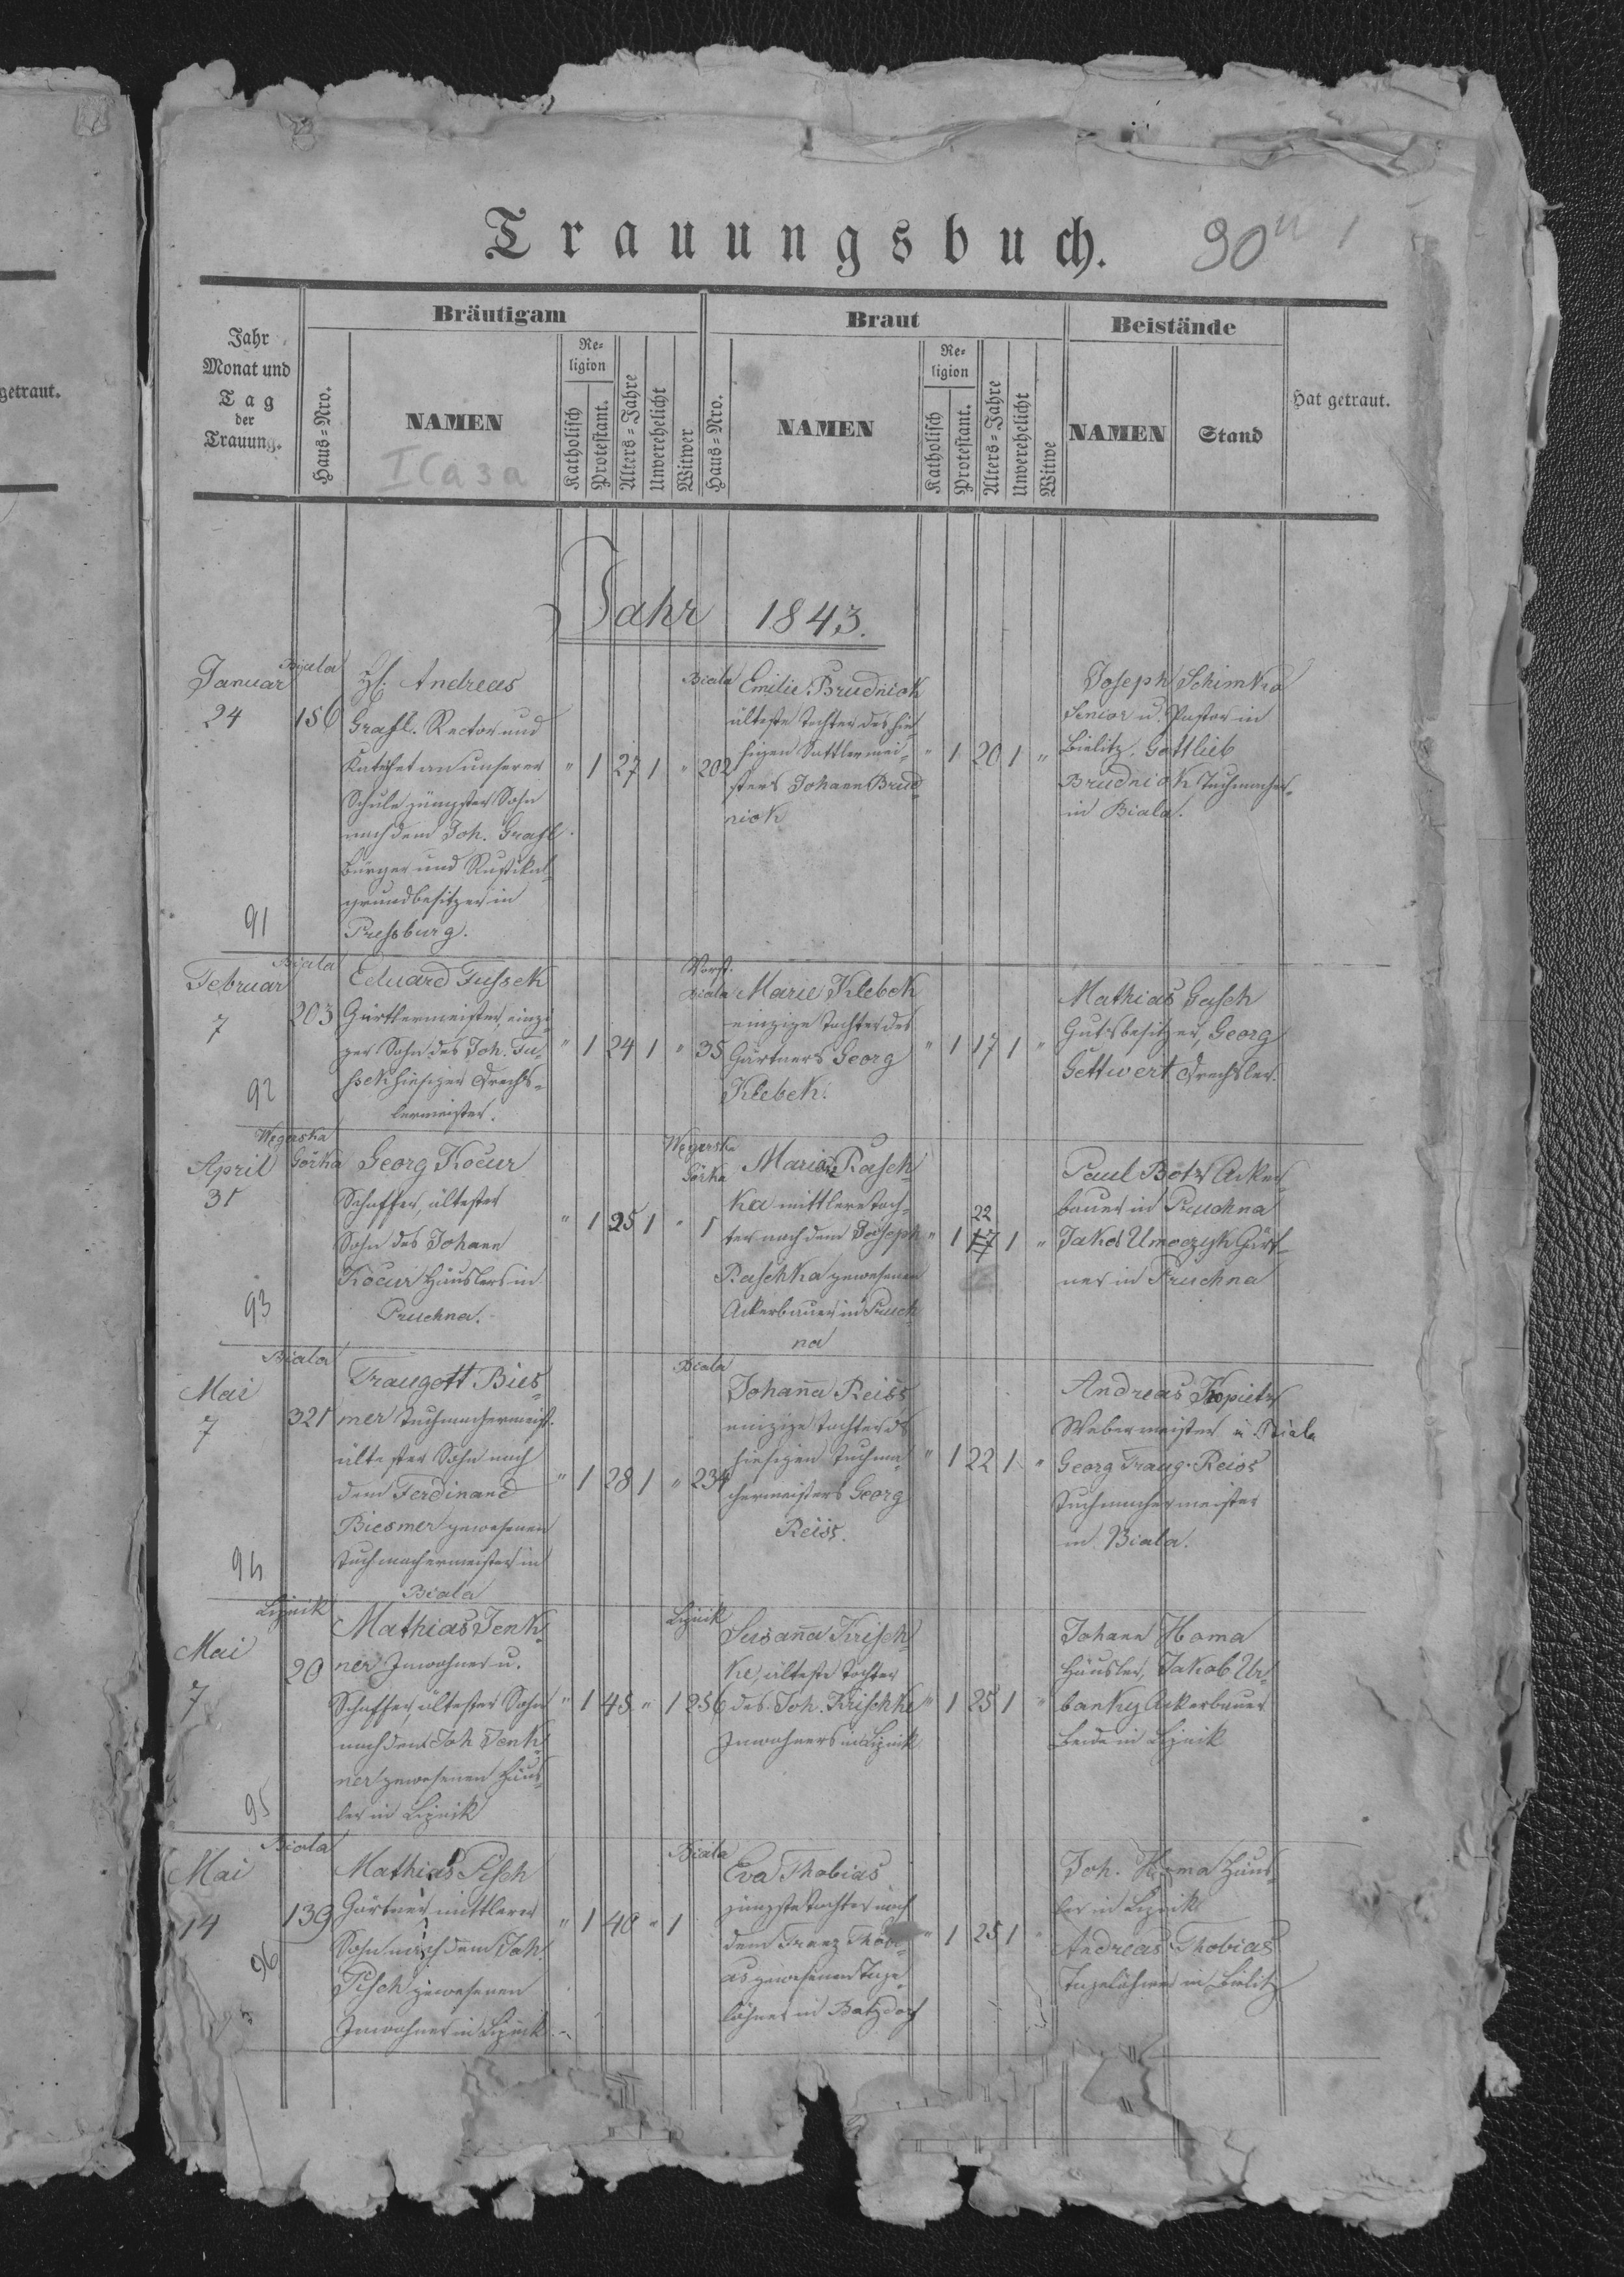 getraut.
Trauungsbuch.
30
Jahr
Monat und
Tag
der
Trauung.
Bräutigam
Haus-Nro.
NAMEN
I Ca 3a
Re-
ligion
Katholisch
Protestant.
Alters-Jahre
Unverehelicht
Witwer
Braut
Haus-Nro.
NAMEN
Re-
ligion
Katholisch
Protestant.
Alters-Jahre
Unverehelicht
Witwe
Beistände
NAMEN
Stand
Hat getraut.
Jahr 1843.
Januar
24
91
Biala
156
H. Andreas
Grafl. Rector und
Katechet an unserer
Schule jüngster Sohn
nach dem Joh. Grafl
Bürger und Rustikal-
grundbesitzer in
Pressburg.
" 1 27 1 "
Biala
202
Emilie Brudniok
älteste Tochter des hie-
sigen Sattlermei-
sters Johann Brud-
niok
" 1 20 1 "
Joseph Schimko
Senior u. Pastor in
Bielitz, Gottlieb
Brudniok Tuchmacher
in Biala.
Februar
7
92
Biala
203
Eduard Fussek
Gürtlermeister, einzi-
ger Sohn des Joh. Fu-
ssek hiesiger Drechs-
lermeister.
" 1 24 1 "
Vorst.
Biala
35
Marie Klebek
einzige Tochter des
Gärtners Georg
Klebek.
" 1 17 1 "
Mathias Gasch
Gutsbesitzer, Georg
Gettwert Drechsler.
April
31
93
Wegerska
Górka
Georg Kocur
Schaffer, ältester
Sohn des Johann
Kocur Häuslers in
Pruchna.
" 1 25 1 "
Wegerska
Górka
1
Maria Rasch-
ka mittlere Toch-
ter nach dem Joseph
Raschka gewesenen
Ackerbauer in Pruch
na
22
" 1 17 1 "
Paul Botz Acker-
bauer in Pruchna
Jakob Umoczyk Gärt-
ner in Pruchna
Mai
7
94
Biala
321
Traugott Bies-
mer Tuchmachermeist.
ältester Sohn nach
dem Ferdinand
Biesmer gewesenen
Tuchmachermeister in
Biala
" 1 28 1 "
Biala
234
Johanna Reiss
einzige Tochter des
hiesigen Tuchma-
chermeisters Georg
Reiss.
" 1 22 1 "
Andreas Kopietz
Webermeister in Biala
Georg Traug. Reiss
Tuchmachermeister
in Biala.
Mai
7
95
Lipnik
20
Mathias Jenk-
ner Inwohner u.
Schaffer, ältester Sohn
nach dem Joh Jenk-
ner gewesenen Häus-
ler in Lipnik
" 1 45 " 1
Lipnik
256
Susanna Krisch-
ke, älteste Tochter
des Joh. Krischke
Inwohners in Lipnik
" 1 25 1 "
Johann Homa
Häusler, Jakob Ur-
banky Ackerbauer
beide in Lipnik
Mai
14
96
Biala
139
Mathias Pisch
Gärtner, mittlerer
Sohn nach dem Joh.
Pisch gewesenen
Inwohner in Lipnik
" 1 40 " 1
Biala
Eva Thobias
jüngste Tochter nach
dem Franz Thobi-
as gewesenen Tage-
löhner in Batzdorf
" 1 25 1 "
Joh. Homa Häus-
ler in Lipnik
Andreas Thobias
Tagelöhner in Bielitz